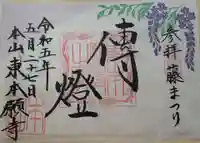 参拝 藤まつり
傳燈
令和五年
五月二十七日
本山東本願寺